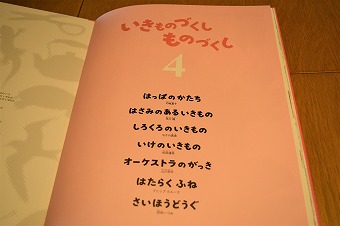 いきものづくし
ものづくし
4
はっぱのかたち
はさみのあるいきもの
しろくろのいきもの
いけのいきもの
オーケストラのがっき
はたらくふね
さいほうどうぐ